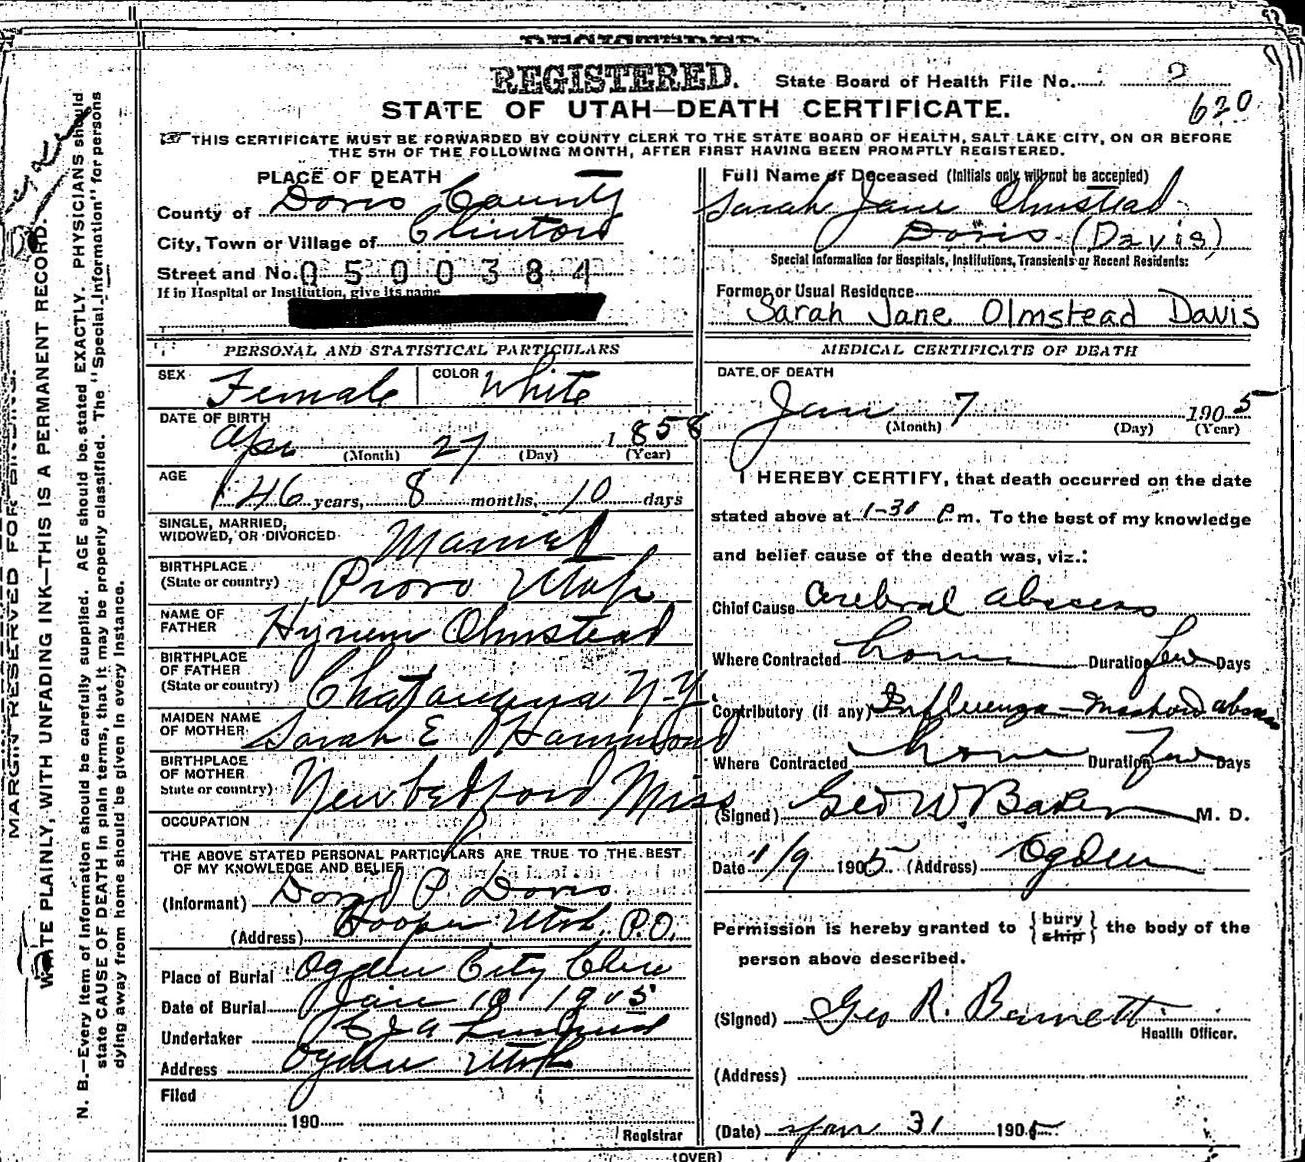 REGISTERED.
State Board of Health File No. 2
620
STATE OF UTAH—DEATH CERTIFICATE.
THIS CERTIFICATE MUST BE FORWARDED BY COUNTY CLERK TO THE STATE BOARD OF HEALTH, SALT LAKE CITY, ON OR BEFORE
THE 5TH OF THE FOLLOWING MONTH, AFTER FIRST HAVING BEEN PROMPTLY REGISTERED.
MARGIN RESERVED FOR BINDING.
WRITE PLAINLY, WITH UNFADING INK—THIS IS A PERMANENT RECORD.
N. B.—Every item of information should be carefully supplied. AGE should be stated EXACTLY. PHYSICIANS should
state CAUSE OF DEATH in plain terms, that it may be properly classified. The "Special Information" for persons
dying away from home should be given in every instance.
PLACE OF DEATH
County of Davis County
City, Town or Village of Clinton
Street and No. 0500384
If in Hospital or Institution, give its name
PERSONAL AND STATISTICAL PARTICULARS
SEX Female COLOR White
DATE OF BIRTH
Apr (Month) 27 (Day) 1858 (Year)
AGE
46 years, 8 months, 10 days
SINGLE, MARRIED,
WIDOWED, OR DIVORCED Married
BIRTHPLACE
(State or country) Provo Utah
NAME OF
FATHER Hyrum Olmstead
BIRTHPLACE
OF FATHER
(State or country) Chatauqua N-Y.
MAIDEN NAME
OF MOTHER Sarah E Hammond
BIRTHPLACE
OF MOTHER
State or country) Newbedford Miss
OCCUPATION
THE ABOVE STATED PERSONAL PARTICULARS ARE TRUE TO THE BEST
OF MY KNOWLEDGE AND BELIEF
(Informant) David P Davis
(Address) Hooper Utah. P.O.
Place of Burial Ogden City
Date of Burial Jan 10 1905
Undertaker
Address Ogden Utah
Filed
190
Registrar
Full Name of Deceased (Initials only will not be accepted)
Sarah Jane Olmstead
Davis (Davis)
Special Information for Hospitals, Institutions, Transients or Recent Residents:
Former or Usual Residence
Sarah Jane Olmstead Davis
MEDICAL CERTIFICATE OF DEATH
DATE OF DEATH
Jan 7 1905
(Month) (Day) (Year)
I HEREBY CERTIFY, that death occurred on the date
stated above at 1-30 P.m. To the best of my knowledge
and belief cause of the death was, viz.:
Chief Cause Cerebral abscess
Where Contracted home Duration few Days
Contributory (if any) Influenza - Mastoid abscess
Where Contracted home Duration Few Days
(Signed) Geo W. Baker M. D.
Date 1/9 1905 (Address) Ogden
Permission is hereby granted to {bury ship} the body of the
person above described.
(Signed) Geo R. Barnett
Health Officer.
(Address)
(Date) Jan 31 1905
(OVER)